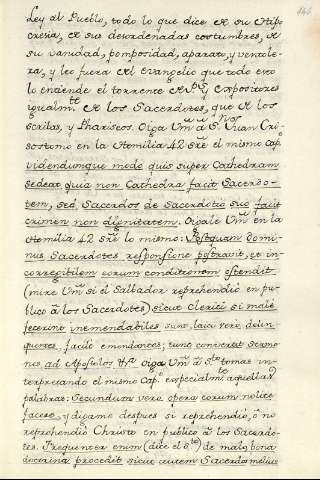 146
Ley al Pueblo, todo lo que dice de su Hipo-
cresia, de sus desordenadas costumbres, de
su vanidad, pomposidad, aparato, y ventole-
ra, y lea fuera del evangelio que todo esto
lo entiende el torrente de PP. y Expositores
igualmte de los Sacerdotes, que de los
Scribas, y Phariseos. Oiga Vm à Sn Juan Cri-
sostomo en la Homilia 42 sre el mismo cap.
videndumque modo quis super Cathedram
sedeat quia non Cathedra facit Sacerdo-
tem, sed Sacerdos
crimen non dignitatem. Oigale Vm en la
Homilia 42 sre lo mismo: Postquam domi-
nus Sacerdotes responsione postravit, et in-
corregibilem eorum conditionem ostendit
(mire Vm si el Salbador reprehendiò en pu-
blico à los Sacerdotes) sicut Clerici si male
fecerint inemendabiles sunt, laici vero delin-
quentes, facile emendantur; tunc conversus sermo-
nus ad Apostolos &a Oiga Vm à Sto tomas in-
terpretando el mismo Capo especialmte aquellas
palabras: Secundum vero opera eorum nolite
facere, y digame despues si reprehendiò, ò no
reprehendiò Christo en publico à los Sacerdo-
tes. Frequenter enim (dice el Sto) de malo bona
doctrina procedit sicut autem Sacerdos melius